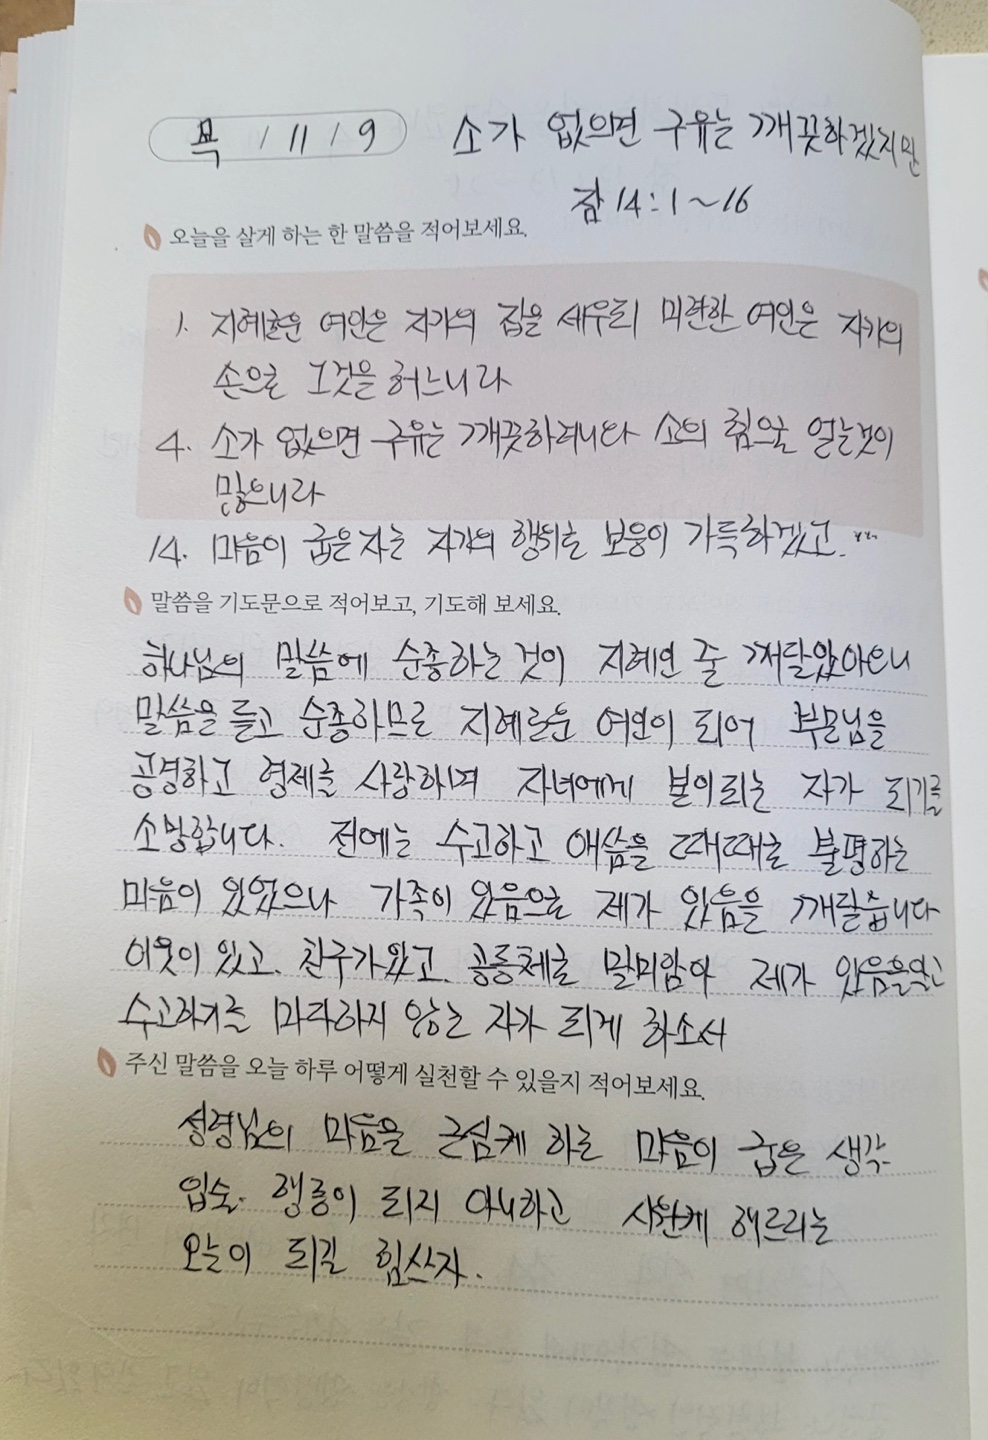 목 / 11 / 9 소가 없으면 구유는 깨끗하겠지만
잠 14:1~16
오늘을 살게 하는 한 말씀을 적어보세요.
1. 지혜로운 여인은 자기의 집을 세우되 미련한 여인은 자기의
손으로 그것을 허느니라
4. 소가 없으면 구유는 깨끗하려니와 소의 힘으로 얻는것이
많으니라
14. 마음이 굽은자는 자기의 행위로 보응이 가득하겠고...
말씀을 기도문으로 적어보고, 기도해 보세요.
하나님의 말씀에 순종하는 것이 지혜인 줄 깨달았아오니
말씀을 듣고 순종하므로 지혜로운 여인이 되어 부모님을
공경하고 형제를 사랑하며 자녀에게 본이되는 자가 되기를
소망합니다. 전에는 수고하고 애씀을 때때로 불평하는
마음이 있었으나 가족이 있음으로 제가 있음을 깨달습니다
이웃이 있고. 친구가있고. 공동체로 말미암아 제가 있음을알고
수고하기를 마다하지 않는 자가 되게 하소서
주신 말씀을 오늘 하루 어떻게 실천할 수 있을지 적어보세요.
성령님의 마음을 근심케 하는 마음이 굽은 생각.
입술. 행동이 되지 아니하고 시원케 해드리는
오늘이 되길 힘쓰자.